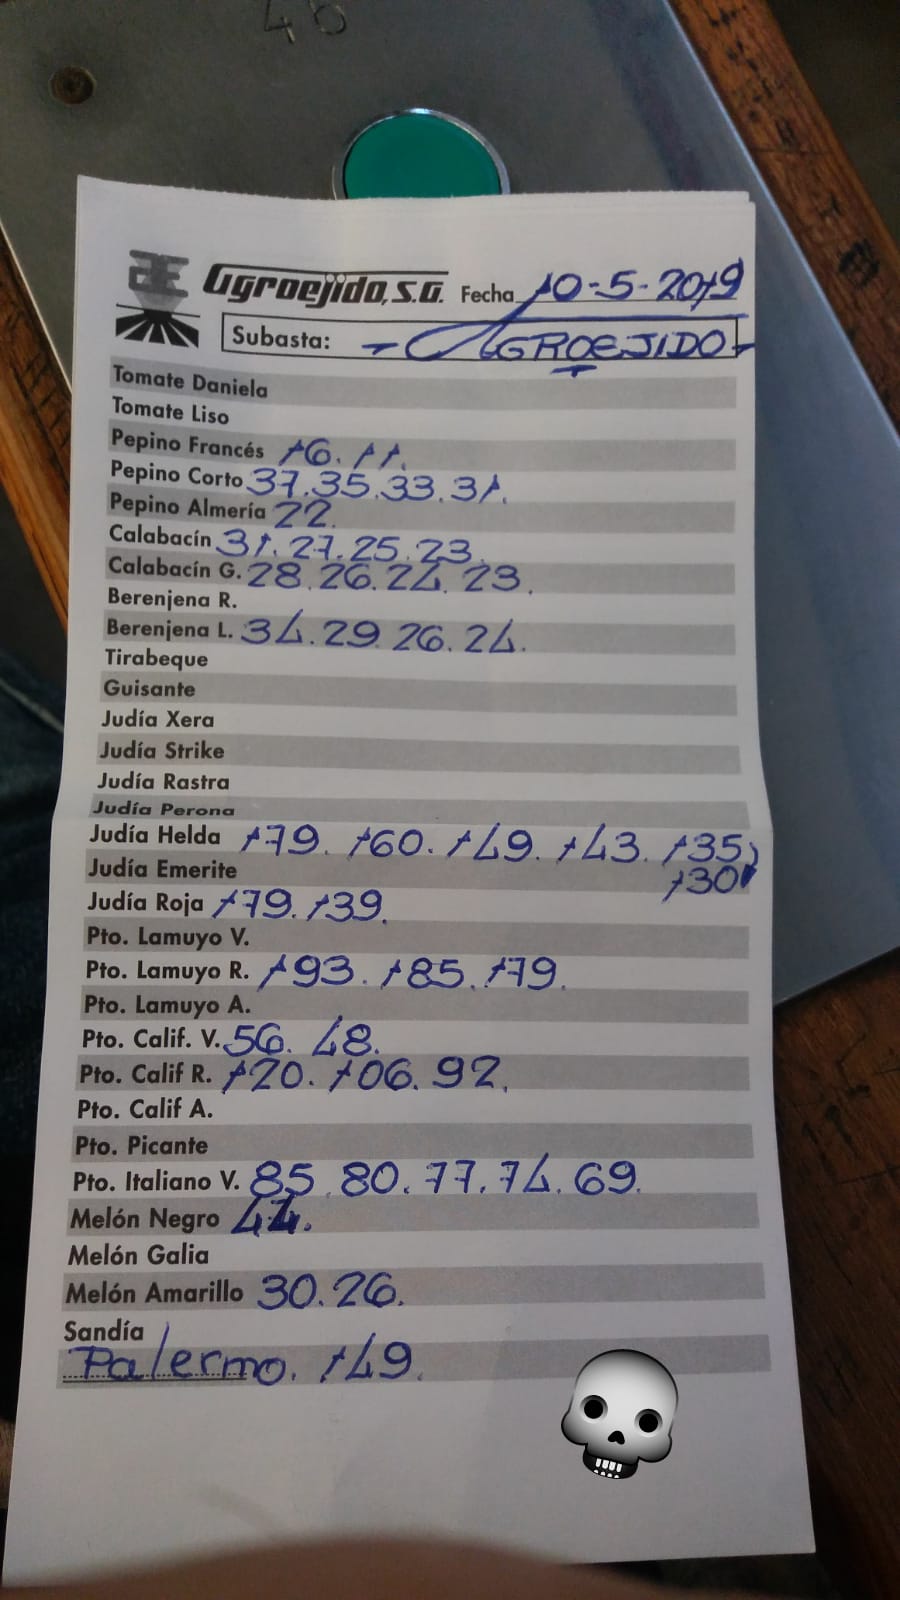 46
Agroejido, S.A. Fecha 10-5-2019
Subasta: - AGROEJIDO -
Tomate Daniela
Tomate Liso
Pepino Francés 16. 11.
Pepino Corto 37. 35. 33. 31.
Pepino Almería 22.
Calabacín 31. 27. 25. 23.
Calabacín G. 28. 26. 24. 23.
Berenjena R.
Berenjena L. 34. 29. 26. 24.
Tirabeque
Guisante
Judía Xera
Judía Strike
Judía Rastra
Judía Perona
Judía Helda 179. 160. 149. 143. 135,
Judía Emerite 130
Judía Roja 179. 139.
Pto. Lamuyo V.
Pto. Lamuyo R. 193. 185. 179.
Pto. Lamuyo A.
Pto. Calif. V. 56. 48.
Pto. Calif R. 120. 106. 92.
Pto. Calif A.
Pto. Picante
Pto. Italiano V. 85. 80. 77. 74. 69.
Melón Negro 44.
Melón Galia
Melón Amarillo 30. 26.
Sandía
Palermo. 149.